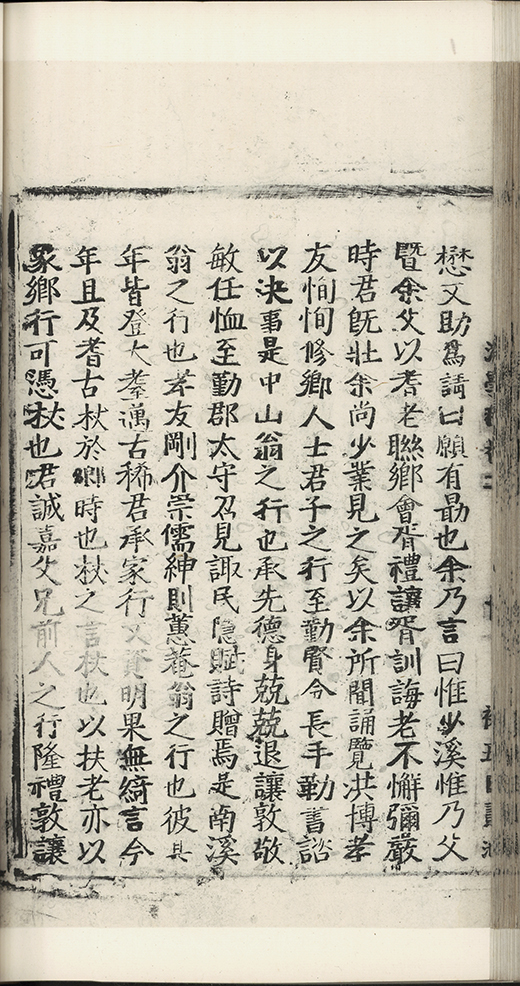 懋又助爲請曰願有勗也余乃言曰惟少溪惟乃父
暨余父以耆老聯鄉會胥禮讓胥訓誨老不懈彌嚴
時君旣壯余尚少業見之矣以余所聞誦覽洪博孝
友恂恂修鄉人士君子之行至勤賢令長手勒書諮
以決事是中山翁之行也承先德身兢兢退讓敦敬
敏任恤至勤郡太守召見諏民隱賦詩贈焉是南溪
翁之行也孝友剛介崇儒紳則蕙菴翁之行也彼其
年皆登大耋濿古稀君承家行又資明果無綺言今
年且及耆古杖於鄉時也杖之言杖也以扶老亦以
象鄉行可憑杖也君誠嘉父兄前人之行隆禮敦讓